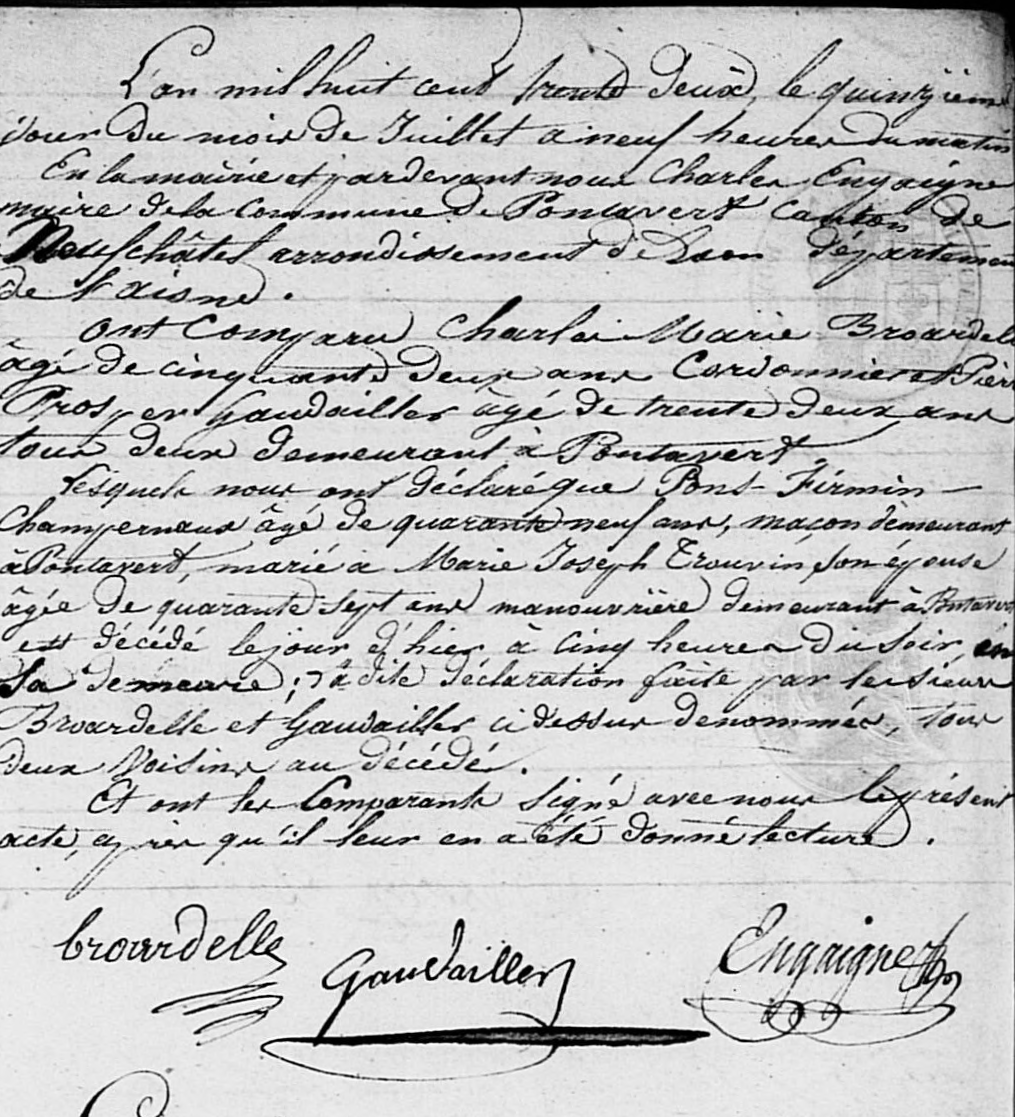 L'an mil huit cent trente deux, le quinzième
jour du mois de Juillet a neuf heures du matin
En la mairie et pardevant nous Charles Engaigne
maire de la Commune de Pontavert Canton de
Neufchâtel arrondissement de Laon département
de l'aisne.
Ont Comparu Charles Marie Broardelle
âgé de cinquante deux ans Cordonnier et Pierre
Prosper Gaudailler âgé de trente deux ans
tous deux demeurant à Pontavert,
Lesquels nous ont déclaré que Pons-Firmin-
Champernaux âgé de quarante neuf ans, maçon demeurant
à Pontavert, marié à Marie Joseph Trouvin, son épouse
âgée de quarante sept ans manouvrière demeurant à Pontavert
est décédé le jour d'hier à Cinq heures du soir, en
Sa demeure; la dite déclaration faite par les sieurs
Broardelle et Gaudailler ci dessus denommés, tous
deux Voisins au décédé.
Et ont les Comparants Signé avec nous le présent
acte, après qu'il leur en a été donné lecture.
broardelle
Gaudailler
Engaigne